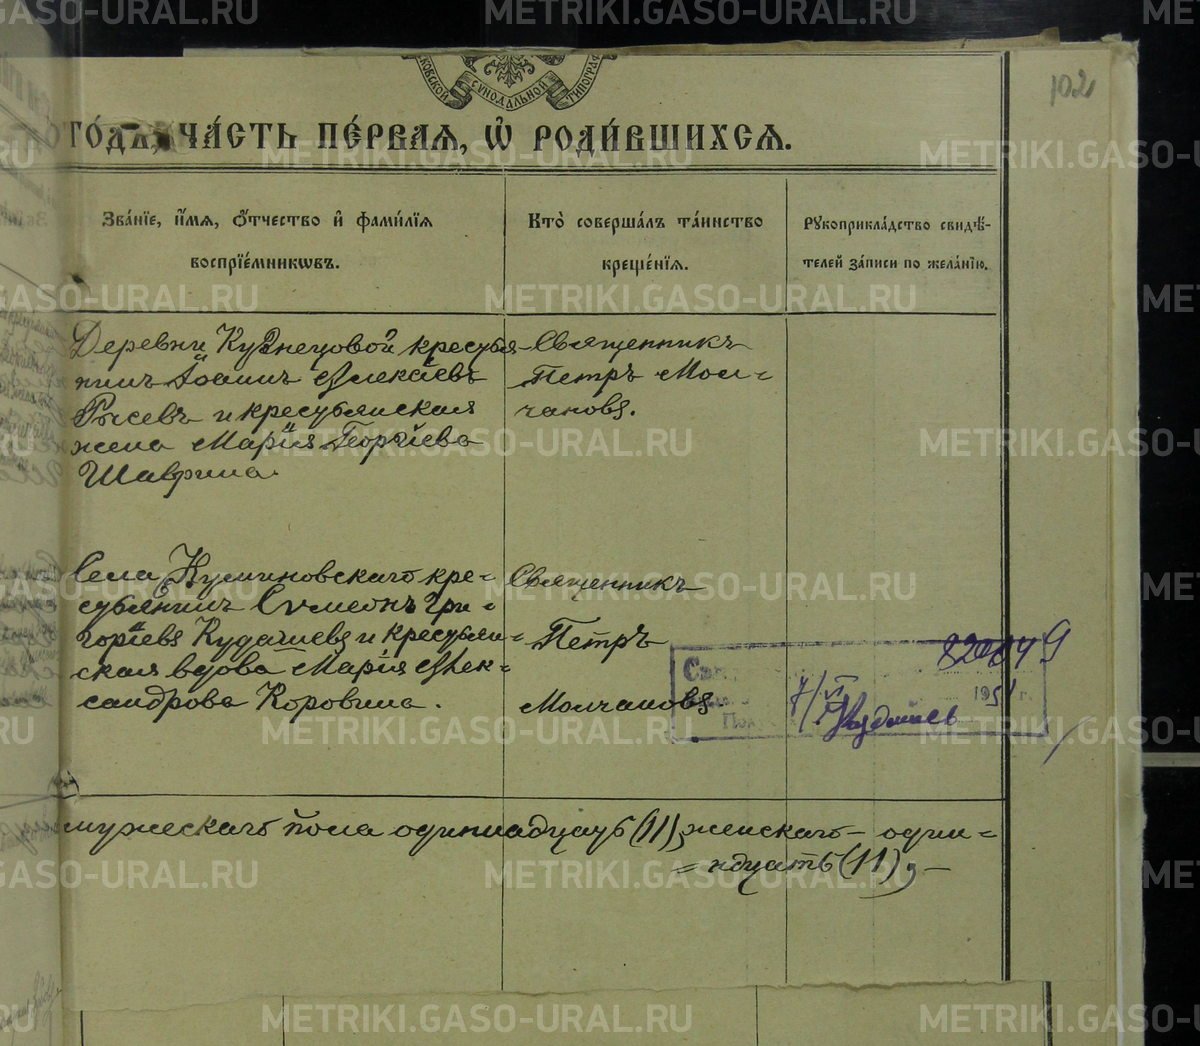 METRIKI.GASO-URAL.RU
102
МОСКОВСКОЙ СѴНОДАЛЬНОЙ ТИПОГРАФ
ГО́ДЪ, ЧА́СТЬ ПЕ́РВАЯ, Ѽ РОДИ́ВШИХСЯ.
Зва́нїе, и҆́мя, ѻ҆́тчество и҆ фами́лїя
воспрїе́мникѡвъ.
Кто̀ соверша́лъ та́инство
креще́нїя.
Рꙋкоприкла́дство свидѣ́-
телей за́писи по жела́нїю.
Деревни Кузнецовой крестья-
нинъ Іоаннъ Алексѣевъ
Рысевъ и крестьянская
жена Марія Георгіева
Шаврина.
Священникъ
Петръ Мол=
чановъ.
Села Куминовскаго кре-
стьянинъ Симеонъ Гри-
горіевъ Кудашевъ и крестьян-
ская вдова Марія Алек-
сандрова Коровина.
Священникъ
Петръ
Молчановъ.
195 г.
мужескаго пола одиннадцать (11), женскаго - один=
= надцать (11), -